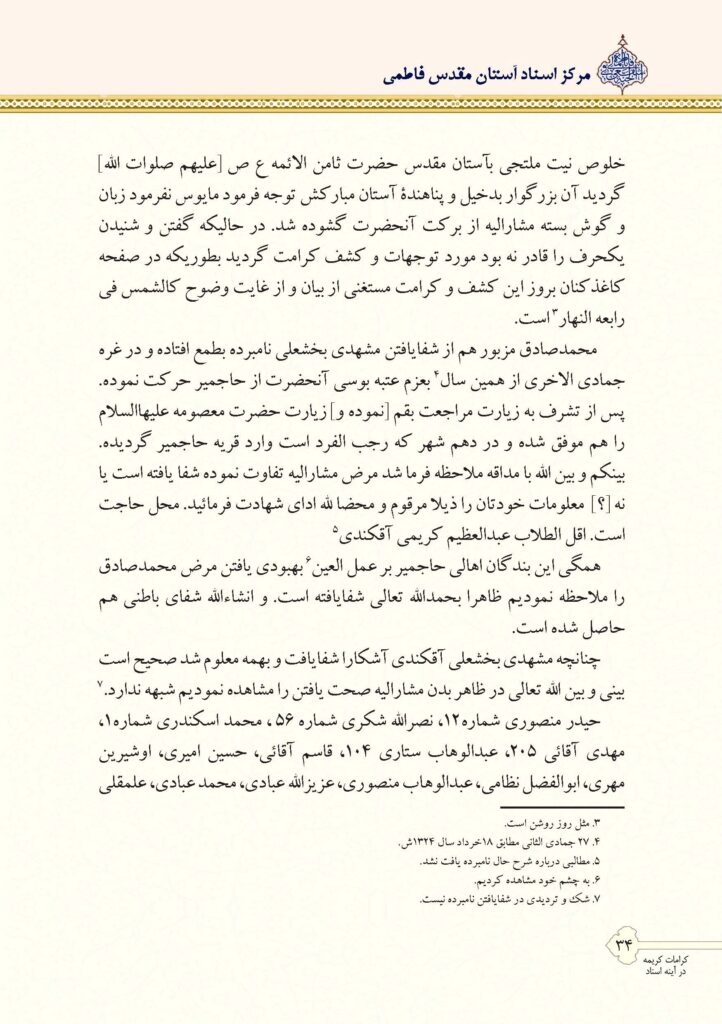 مرکز اسناد آستان مقدس فاطمی
خلوص نیت ملتجی بآستان مقدس حضرت ثامن الائمه ع ص [علیهم صلوات الله]
گردید آن بزرگوار بدخیل و پناهندهٔ آستان مبارکش توجه فرمود مایوس نفرمود زبان
و گوش بسته مشارالیه از برکت آنحضرت گشوده شد. در حالیکه گفتن و شنیدن
یکحرف را قادر نه بود مورد توجهات و کشف کرامت گردید بطوریکه در صفحه
کاغذکنان بروز این کشف و کرامت مستغنی از بیان و از غایت وضوح کالشمس فی
رابعه النهار۳ است.
محمدصادق مزبور هم از شفایافتن مشهدی بخشعلی نامبرده بطمع افتاده و در غره
جمادی الاخری از همین سال۴ بعزم عتبه بوسی آنحضرت از حاجمیر حرکت نموده.
پس از تشرف به زیارت مراجعت بقم [نموده و] زیارت حضرت معصومه علیهاالسلام
را هم موفق شده و در دهم شهر که رجب الفرد است وارد قریه حاجمیر گردیده.
بینکم و بین الله با مداقه ملاحظه فرما شد مرض مشارالیه تفاوت نموده شفا یافته است یا
نه [؟] معلومات خودتان را ذیلا مرقوم و محضا لله ادای شهادت فرمائید. محل حاجت
است. اقل الطلاب عبدالعظیم کریمی آقکندی۵
همگی این بندگان اهالی حاجمیر بر عمل العین۶ بهبودی یافتن مرض محمدصادق
را ملاحظه نمودیم ظاهرا بحمدالله تعالی شفایافته است. و انشاءالله شفای باطنی هم
حاصل شده است.
چنانچه مشهدی بخشعلی آقکندی آشکارا شفایافت و بهمه معلوم شد صحیح است
بینی و بین الله تعالی در ظاهر بدن مشارالیه صحت یافتن را مشاهده نمودیم شبهه ندارد.۷
حیدر منصوری شماره۱۲، نصرالله شکری شماره ۵۶، محمد اسکندری شماره۱،
مهدی آقائی ۲۰۵، عبدالوهاب ستاری ۱۰۴، قاسم آقائی، حسین امیری، اوشیرین
مهری، ابوالفضل نظامی، عبدالوهاب منصوری، عزیزالله عبادی، محمد عبادی، علمقلی
۳. مثل روز روشن است.
۴. ۲۷ جمادی الثانی مطابق ۱۸خرداد سال ۱۳۲۴ش.
۵. مطالبی درباره شرح حال نامبرده یافت نشد.
۶. به چشم خود مشاهده کردیم.
۷. شک و تردیدی در شفایافتن نامبرده نیست.
۳۴
کرامات کریمه
در آینه اسناد